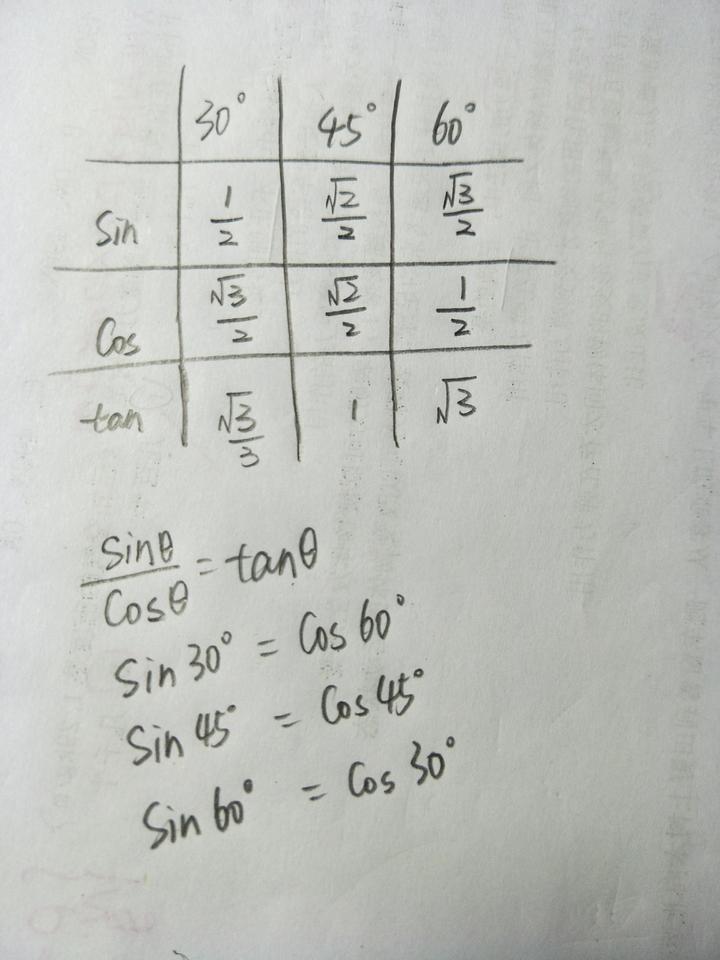 30° 45° 60°
Sin 1/2 √2/2 √3/2
Cos √3/2 √2/2 1/2
tan √3/3 1 √3
Sinθ/Cosθ = tanθ
Sin 30° = Cos 60°
Sin 45° = Cos 45°
Sin 60° = Cos 30°